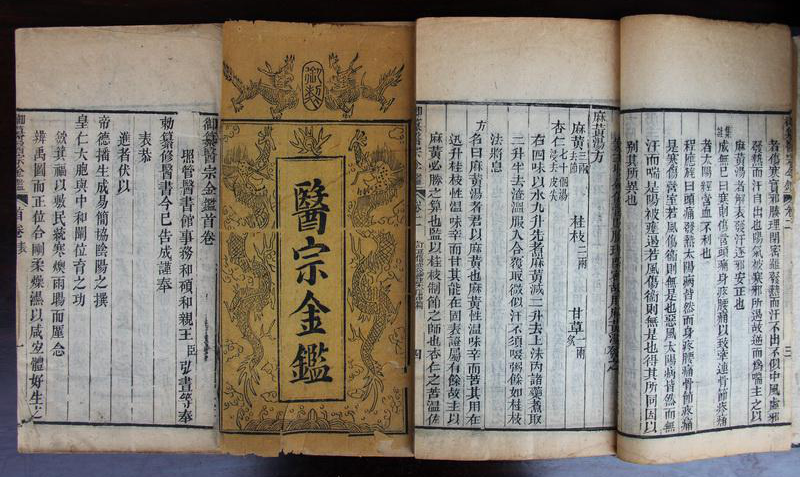 御纂醫宗金鑑首卷
照管醫書館事務和碩和親王臣弘晝等奉
勅纂修醫書今已告成謹奉
表恭
進者伏以
帝德播生成易簡協陰陽之撰
皇仁大胞與中和關位育之功
歛其福以敷民蓺寒燠雨暘而厪念
辨禹圖而正位合剛柔燥濕以咸宜體好生之
御纂醫宗金鑑 首卷表 一
御製
醫宗金鑑
若傷寒實邪腠理閉密雖發熱而汗不出不似中風虛邪
發熱而汗自出也陽氣被寒邪所遏故逆而為喘主之以
麻黃湯者解表發汗逐邪安正也
集註成無已曰寒則傷營頭痛身疼腰痛以致牽連骨節疼痛
者太陽經營血不利也
程應旄曰頭痛發熱太陽病皆然而身疼腰痛骨節疼痛
是寒傷營室若風傷衛則無是也惡風太陽病皆然而無
汗而喘是陽被壅遏若風傷衛則無是也得其所同因以
別其所異也
麻黃湯方
麻黃三兩去節 桂枝二兩 甘草一兩炙
杏仁七十個湯浸去皮尖
右四味以水九升先煮麻黃減二升去上沫內諸藥煮取
二升半去渣溫服八合覆取微似汗不須啜粥餘如桂枝
法將息
方名曰麻黃湯者君以麻黃也麻黃性溫味辛而苦其用在
迅升桂枝性溫味辛而甘其能在固表證屬有餘故主以
麻黃必勝之算也監以桂枝制節之師也杏仁之苦溫佐